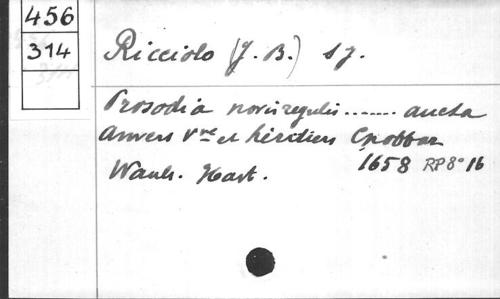 456
314
Ricciolo (J. B.) S J.
Prosodia novis regulis ....... aucta
Anvers Vve et héritiers Cnobbar
1658 RP 8° 16
Hart.